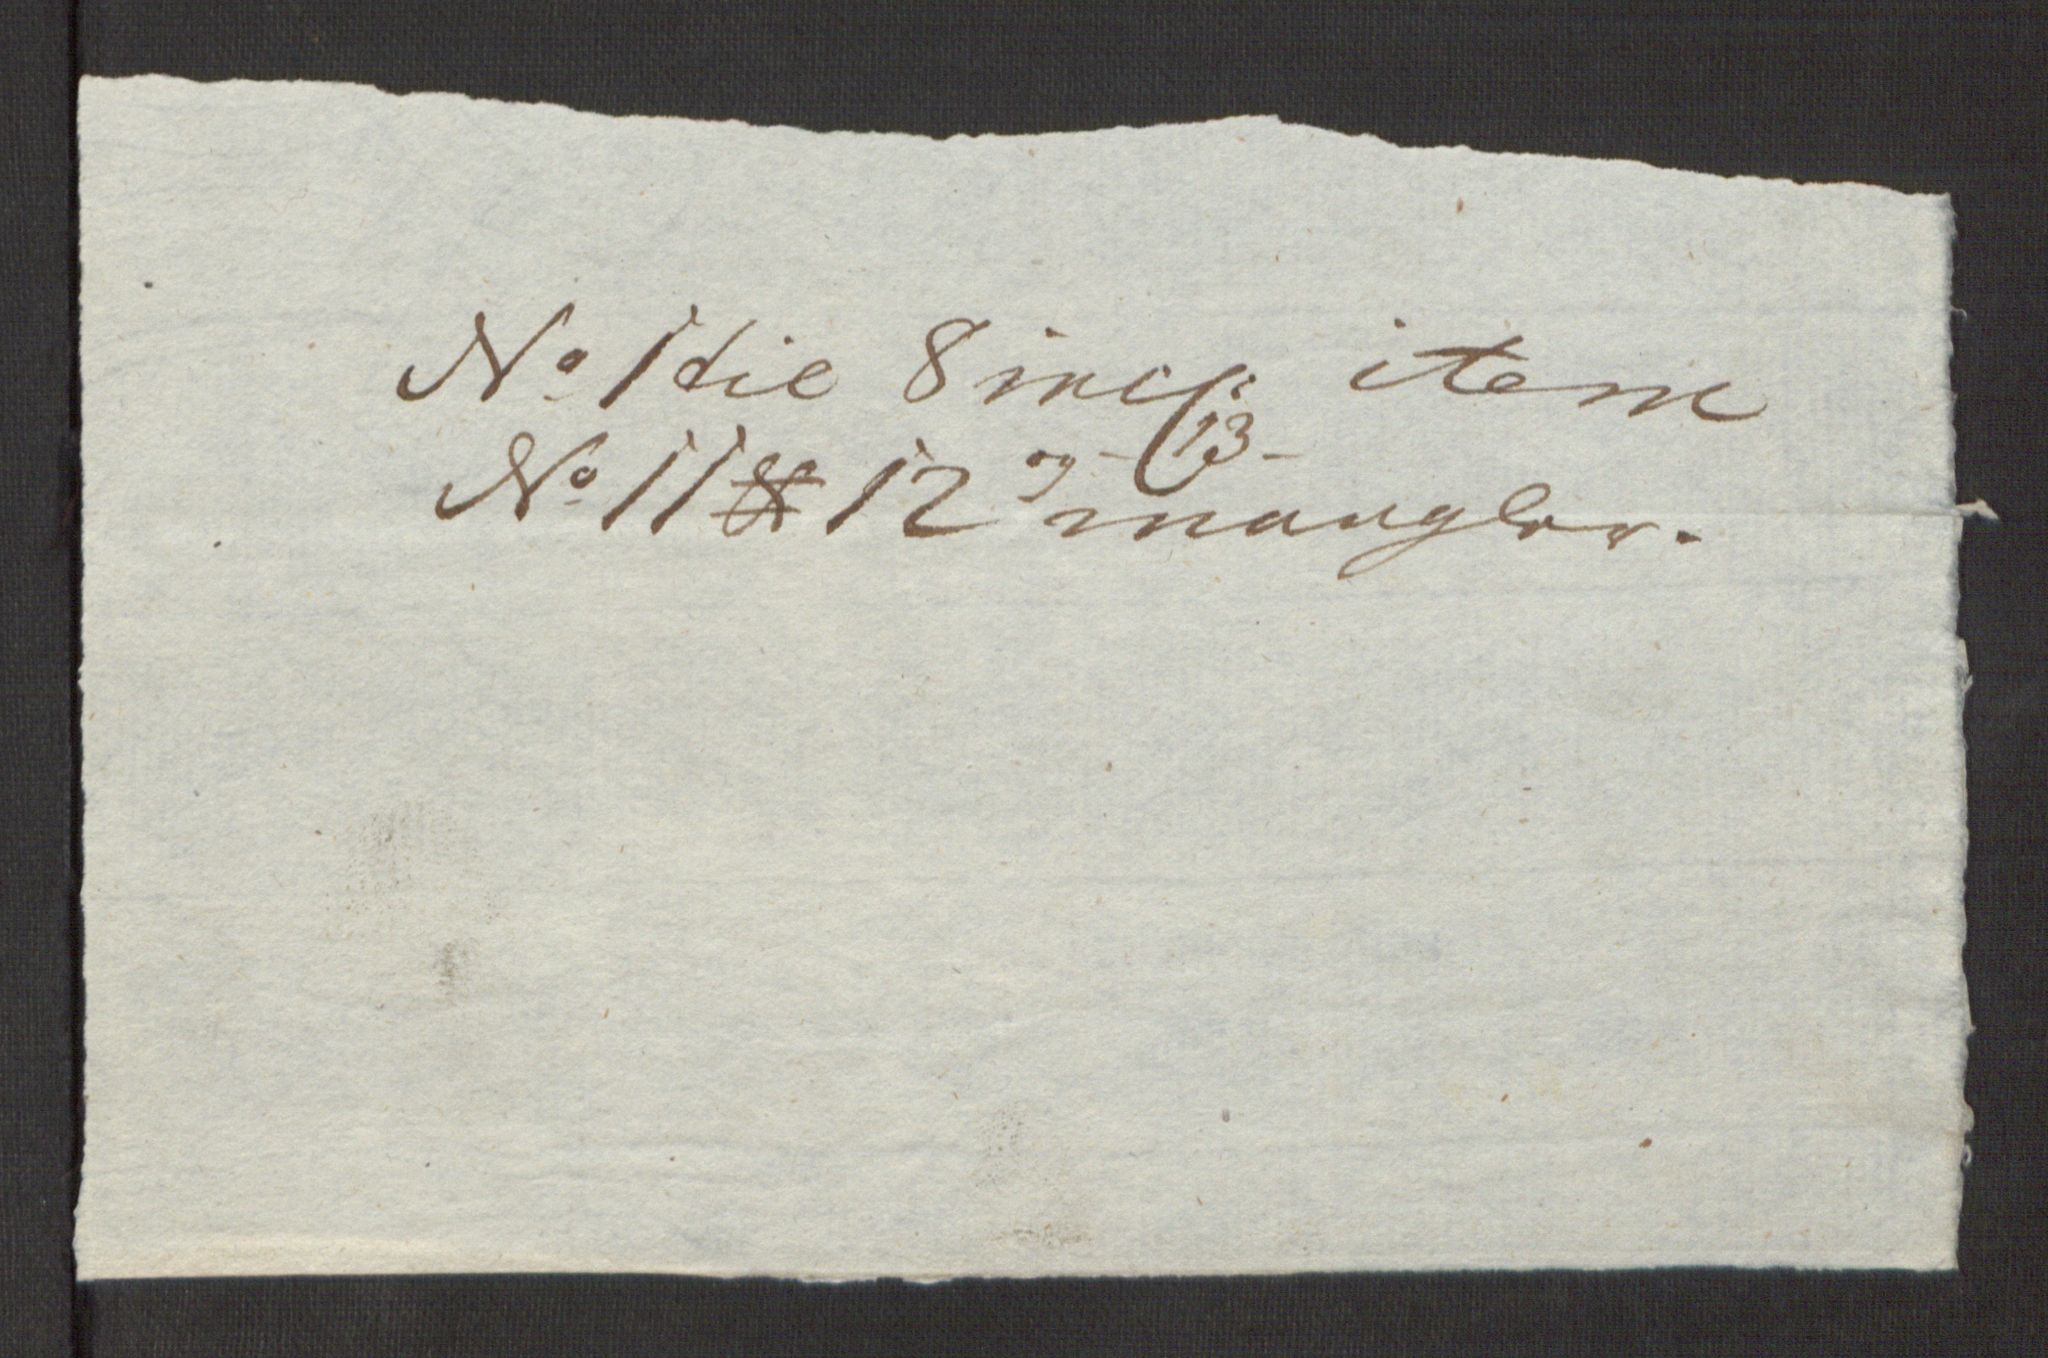 No 1 til 8 incl: item
No 11 & 12 og - 13 -
mangler.